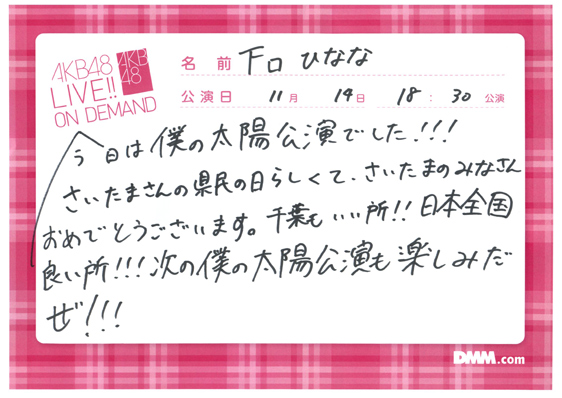 AKB48
LIVE!!
ON DEMAND
AKB
48
名前 下口ひなな
公演日 11月 14日 18:30 公演
今日は僕の太陽公演でした!!!
さいたまさんの県民の日らしくて、さいたまのみなさん
おめでとうございます。千葉もいい所!!日本全国
良い所!!!次の僕の太陽公演も楽しみだ
ぜ!!!
DMM.com